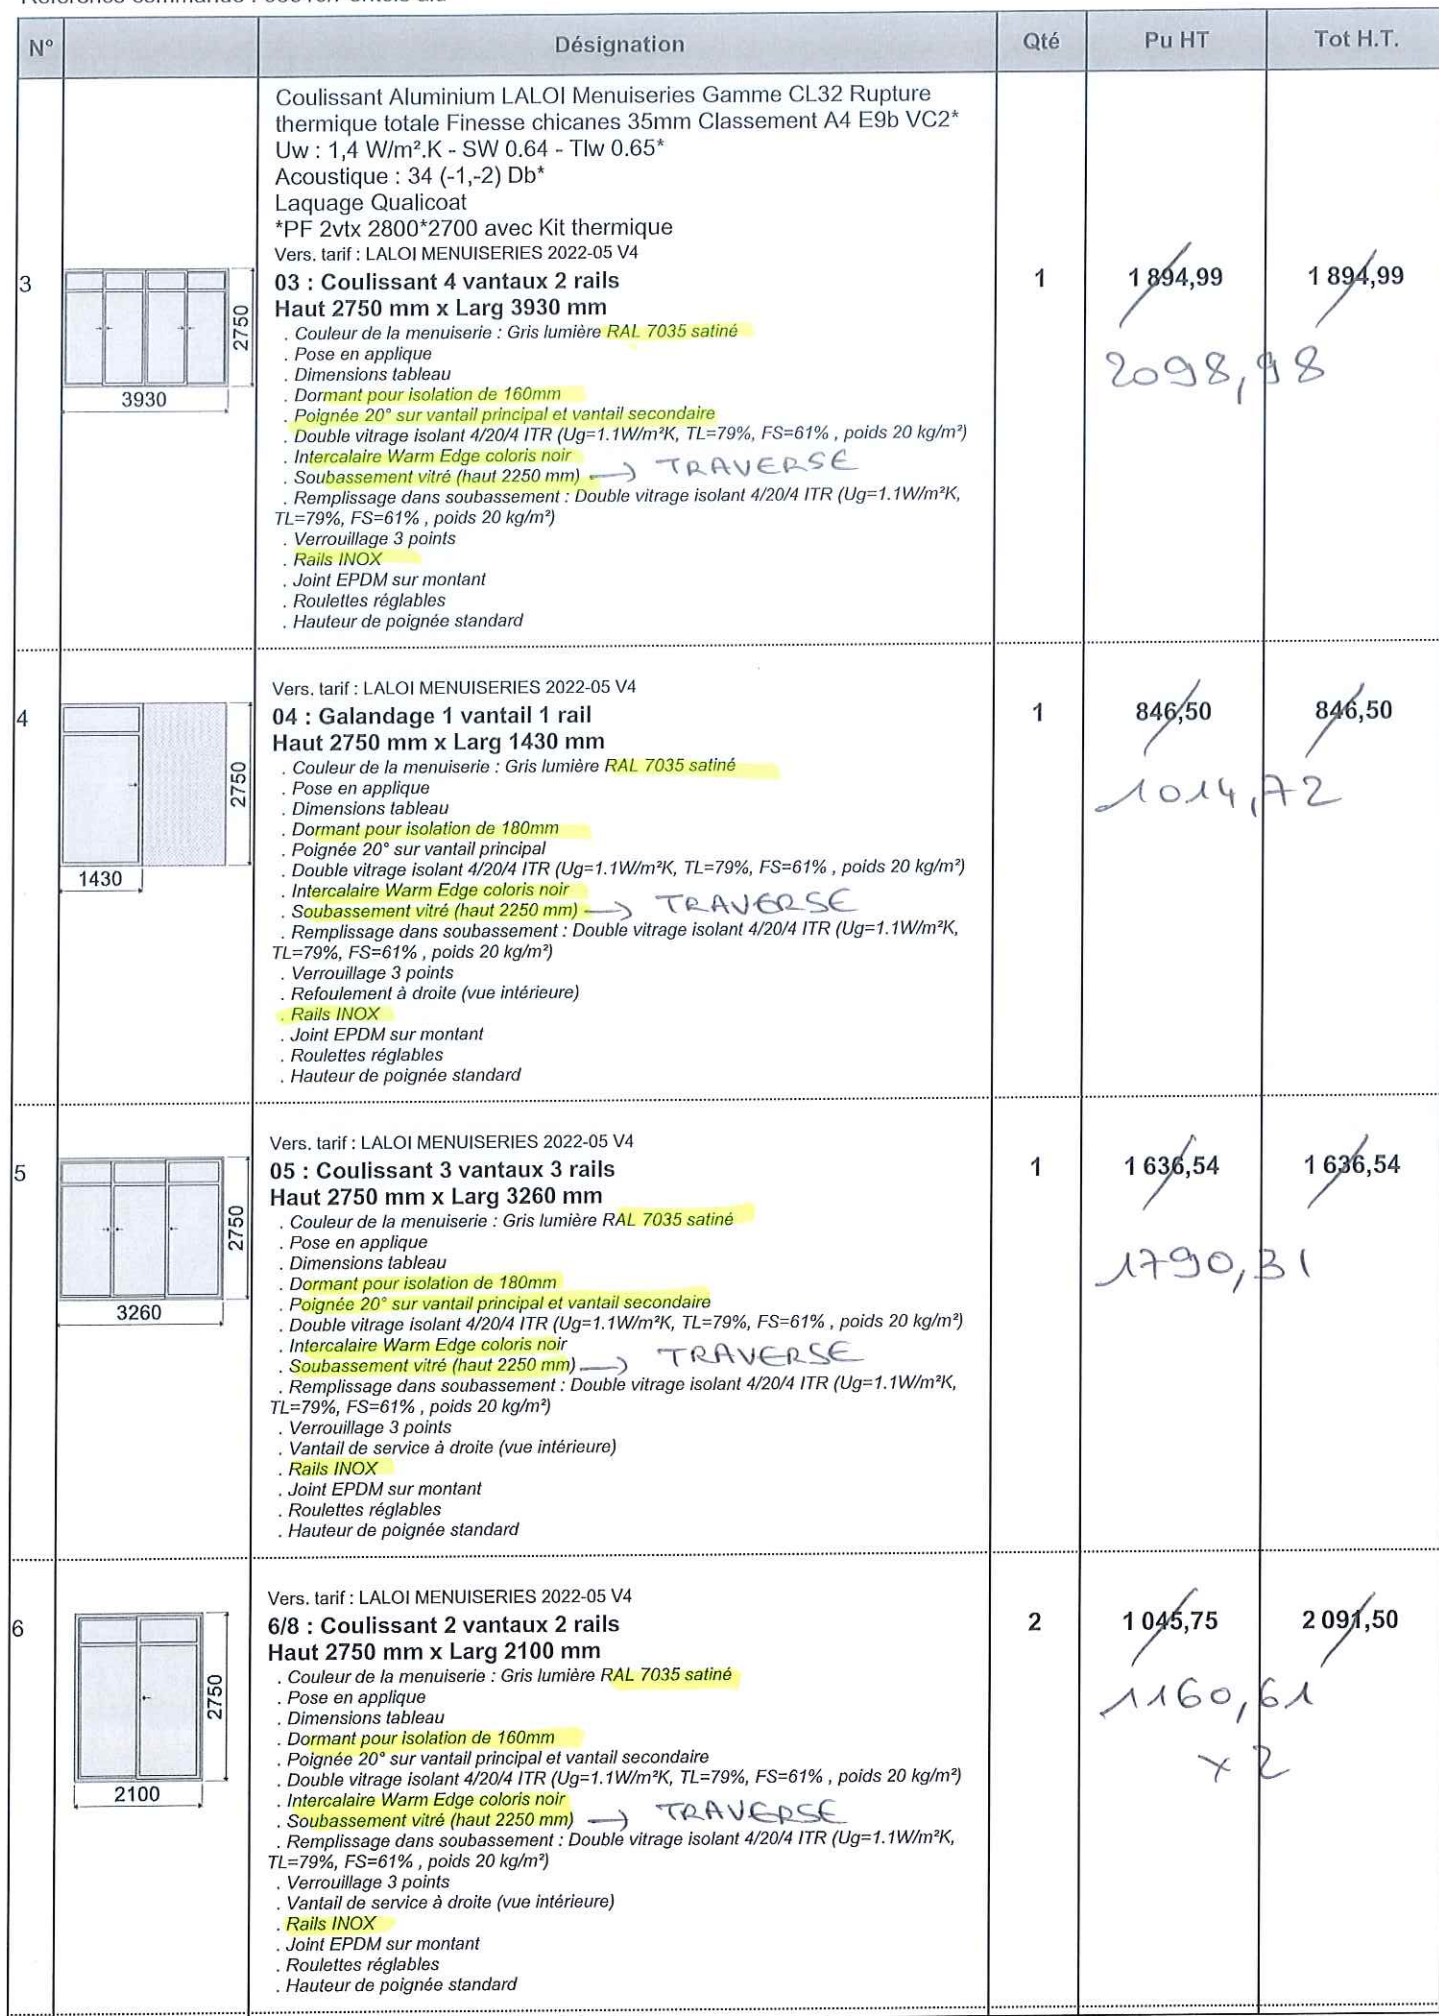 N° Désignation Qté Pu HT Tot H.T.
Coulissant Aluminium LALOI Menuiseries Gamme CL32 Rupture
thermique totale Finesse chicanes 35mm Classement A4 E9b VC2*
Uw : 1,4 W/m².K - SW 0.64 - Tlw 0.65*
Acoustique : 34 (-1,-2) Db*
Laquage Qualicoat
*PF 2vtx 2800*2700 avec Kit thermique
Vers. tarif : LALOI MENUISERIES 2022-05 V4
3 03 : Coulissant 4 vantaux 2 rails 1 1 894,99 1 894,99
Haut 2750 mm x Larg 3930 mm
2750
3930
. Couleur de la menuiserie : Gris lumière RAL 7035 satiné
. Pose en applique
2098,98
. Dimensions tableau
. Dormant pour isolation de 160mm
. Poignée 20° sur vantail principal et vantail secondaire
. Double vitrage isolant 4/20/4 ITR (Ug=1.1W/m²K, TL=79%, FS=61% , poids 20 kg/m²)
. Intercalaire Warm Edge coloris noir
. Soubassement vitré (haut 2250 mm) → TRAVERSE
. Remplissage dans soubassement : Double vitrage isolant 4/20/4 ITR (Ug=1.1W/m²K,
TL=79%, FS=61% , poids 20 kg/m²)
. Verrouillage 3 points
. Rails INOX
. Joint EPDM sur montant
. Roulettes réglables
. Hauteur de poignée standard
Vers. tarif : LALOI MENUISERIES 2022-05 V4
4 04 : Galandage 1 vantail 1 rail 1 846,50 846,50
Haut 2750 mm x Larg 1430 mm
2750
1430
. Couleur de la menuiserie : Gris lumière RAL 7035 satiné
. Pose en applique
1014,72
. Dimensions tableau
. Dormant pour isolation de 180mm
. Poignée 20° sur vantail principal
. Double vitrage isolant 4/20/4 ITR (Ug=1.1W/m²K, TL=79%, FS=61% , poids 20 kg/m²)
. Intercalaire Warm Edge coloris noir
. Soubassement vitré (haut 2250 mm) → TRAVERSE
. Remplissage dans soubassement : Double vitrage isolant 4/20/4 ITR (Ug=1.1W/m²K,
TL=79%, FS=61% , poids 20 kg/m²)
. Verrouillage 3 points
. Refoulement à droite (vue intérieure)
. Rails INOX
. Joint EPDM sur montant
. Roulettes réglables
. Hauteur de poignée standard
Vers. tarif : LALOI MENUISERIES 2022-05 V4
5 05 : Coulissant 3 vantaux 3 rails 1 1 636,54 1 636,54
Haut 2750 mm x Larg 3260 mm
2750
3260
. Couleur de la menuiserie : Gris lumière RAL 7035 satiné
. Pose en applique
1790,31
. Dimensions tableau
. Dormant pour isolation de 180mm
. Poignée 20° sur vantail principal et vantail secondaire
. Double vitrage isolant 4/20/4 ITR (Ug=1.1W/m²K, TL=79%, FS=61% , poids 20 kg/m²)
. Intercalaire Warm Edge coloris noir
. Soubassement vitré (haut 2250 mm) → TRAVERSE
. Remplissage dans soubassement : Double vitrage isolant 4/20/4 ITR (Ug=1.1W/m²K,
TL=79%, FS=61% , poids 20 kg/m²)
. Verrouillage 3 points
. Vantail de service à droite (vue intérieure)
. Rails INOX
. Joint EPDM sur montant
. Roulettes réglables
. Hauteur de poignée standard
Vers. tarif : LALOI MENUISERIES 2022-05 V4
6 6/8 : Coulissant 2 vantaux 2 rails 2 1 045,75 2 091,50
Haut 2750 mm x Larg 2100 mm
2750
2100
. Couleur de la menuiserie : Gris lumière RAL 7035 satiné
. Pose en applique
1160,61
. Dimensions tableau
. Dormant pour isolation de 160mm
. Poignée 20° sur vantail principal et vantail secondaire
x 2
. Double vitrage isolant 4/20/4 ITR (Ug=1.1W/m²K, TL=79%, FS=61% , poids 20 kg/m²)
. Intercalaire Warm Edge coloris noir
. Soubassement vitré (haut 2250 mm) → TRAVERSE
. Remplissage dans soubassement : Double vitrage isolant 4/20/4 ITR (Ug=1.1W/m²K,
TL=79%, FS=61% , poids 20 kg/m²)
. Verrouillage 3 points
. Vantail de service à droite (vue intérieure)
. Rails INOX
. Joint EPDM sur montant
. Roulettes réglables
. Hauteur de poignée standard